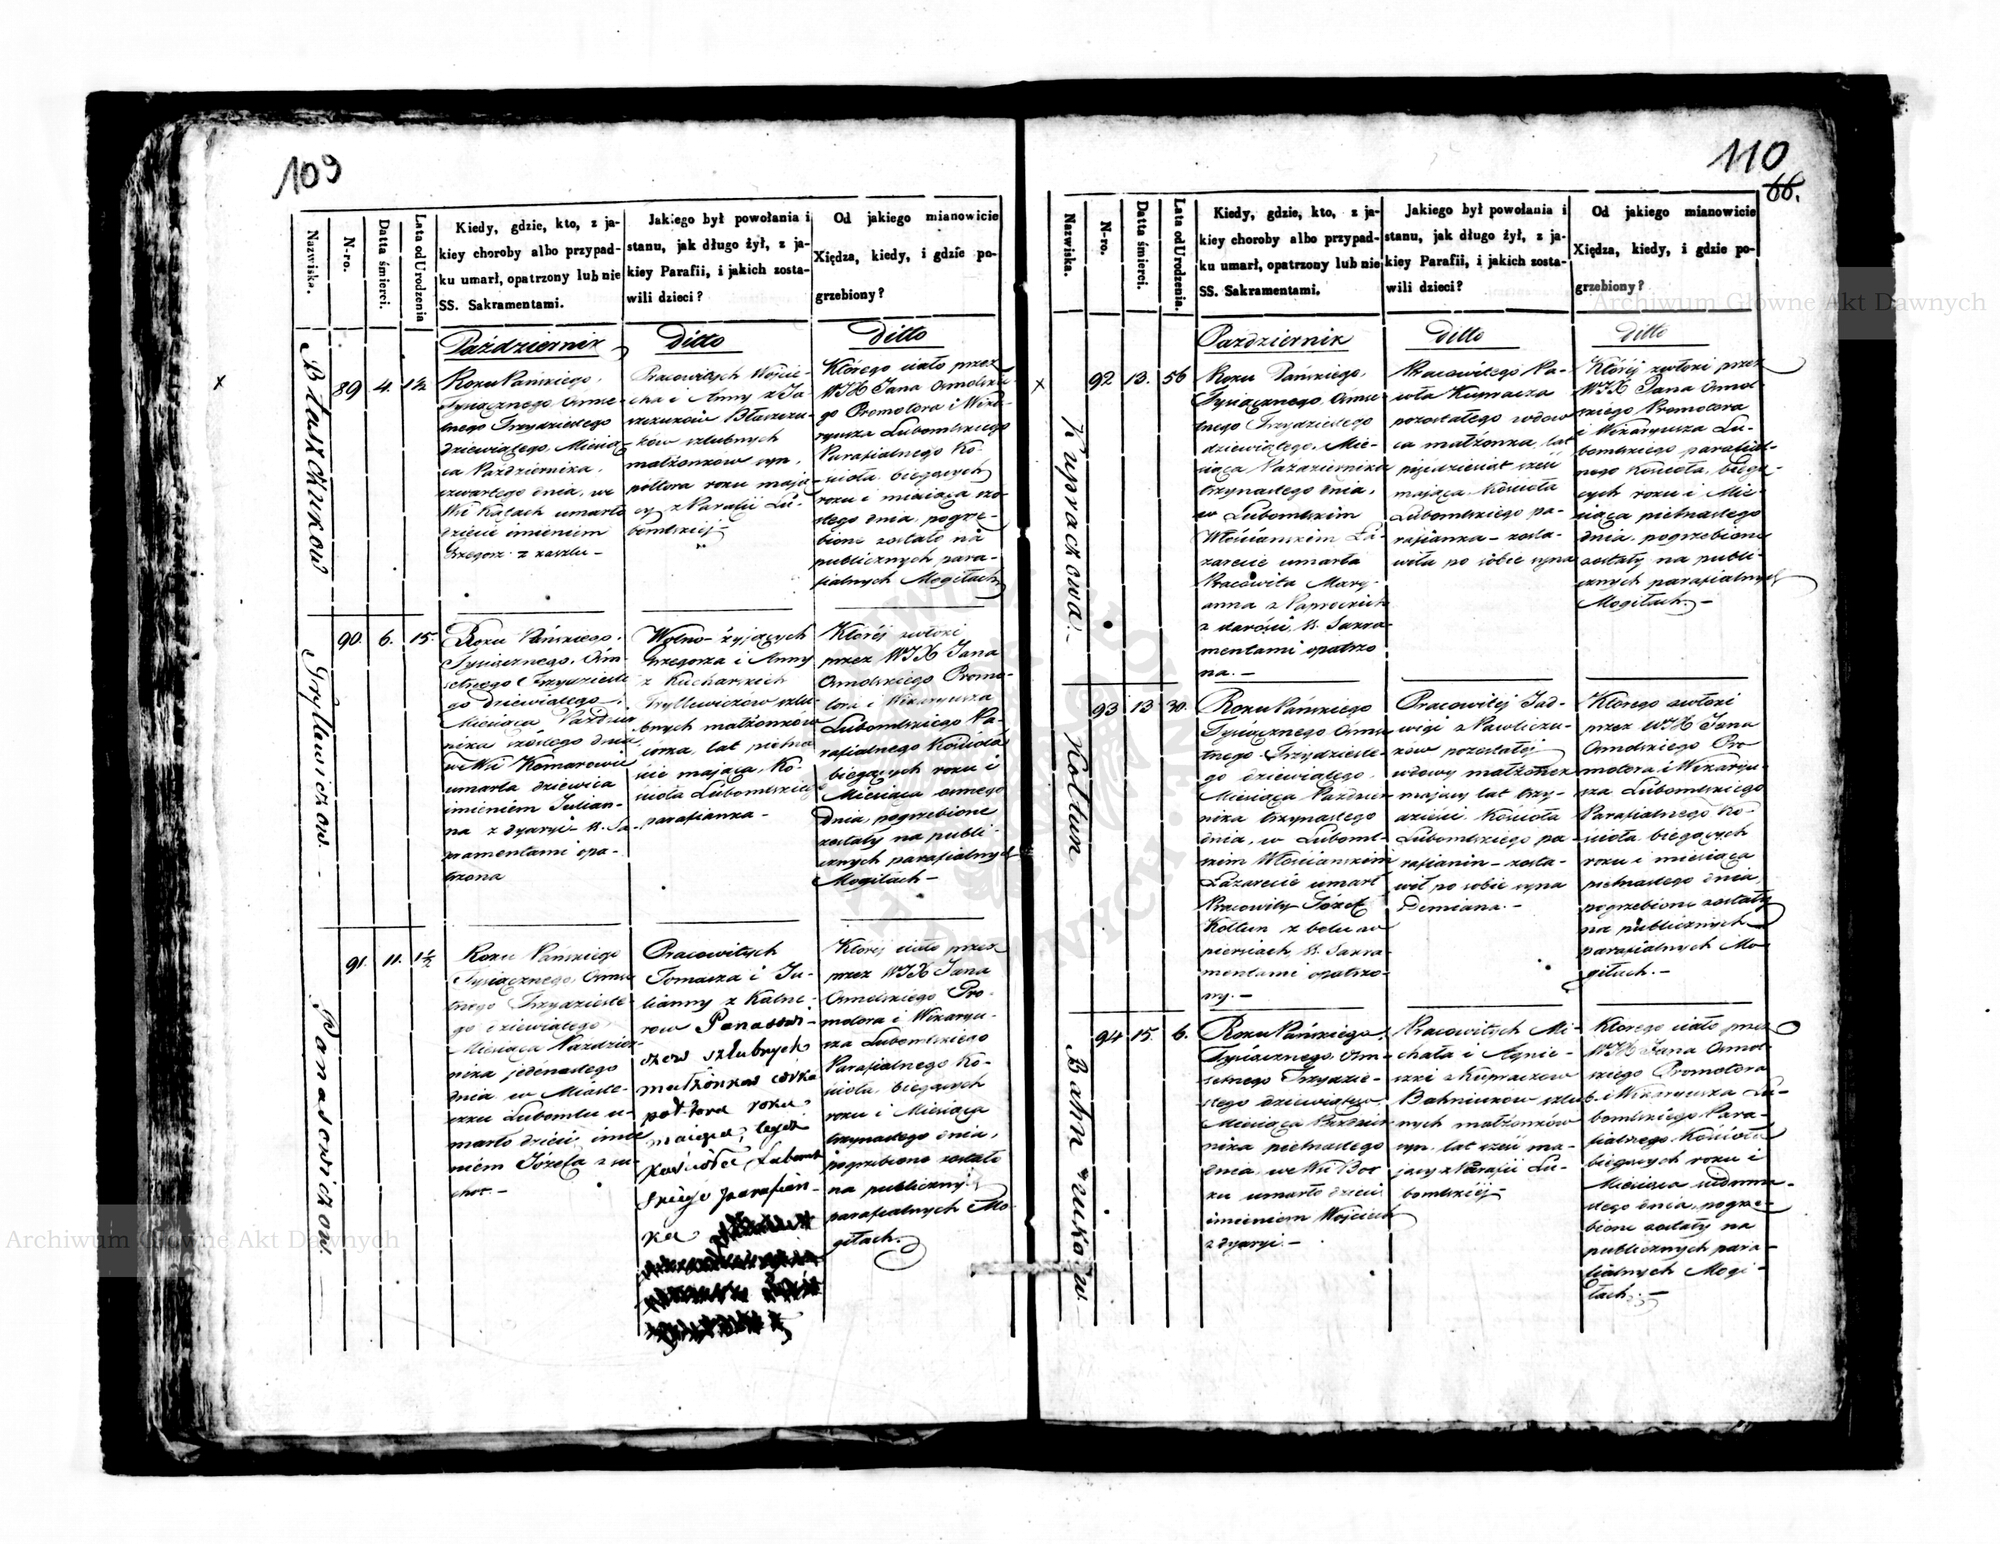 109
Nazwiska.
N-ro.
Datta śmierci.
Lata od Urodzenia
Kiedy, gdzie, kto, z ja-
kiey choroby albo przypad-
ku umarł, opatrzony lub nie
SS. Sakramentami.
Jakiego był powołania i
stanu, jak długo żył, z ja-
kiey Parafii, i jakich zosta-
wili dzieci?
Od jakiego mianowicie
Xiędza, kiedy, i gdzie po-
grzebiony?
Październik
Ditto
Ditto
89
4.
1½
Roku Pańskiego,
Tysiącznego Ośmse-
tnego Trzydziestego
dziewiątego, Miesią-
ca Października,
czwartego dnia, we
Wsi Kątach umarło
dziecie imieniem
Grzegorz z kaszlu –
Pracowitych Wojcie-
cha i Anny z Ja-
szczuków Błaszczu-
ków szlubnych
małżonków syn,
półtora roku mają-
cy z Parafii Lu-
bomlskiej –
Którego ciało przez
WJX Jana Omolski-
go Promotora i Wika-
ryusza Lubomlskiego
Parafialnego Ko-
ścioła, bieżących
roku i miesiąca szó-
stego dnia, pogrze-
bione zostało na
publicznych para-
fialnych Mogiłach
90.
6.
15
Roku Pańskiego,
Tysiącznego, Ośm-
setnego Trzydzieste-
go dziewiątego,
Miesiąca Paździer-
nika szóstego dnia
we Wsi Komarowie
umarła dziewica
imieniem Julian-
na z dyaryi S. Sa-
kramentami opa-
trzona
Wolno-żyjących
Grzegorza i Anny
z Kucharskich
Gryllewiczów szlu-
bnych małżonków
córka, lat pietna-
ście mająca, Ko-
ścioła Lubomlskiego
parafianka –
Którój zwłoki
przez WJX Jana
Omolskiego Promo-
tora i Wikaryusza
Lubomlskiego Pa-
rafialnego Kościoła
bieżących roku i
Miesiąca osmego
dnia, pogrzebione
zostały na publi-
cznych parafialnych
Mogiłach –
91.
11.
1½
Roku Pańskiego
Tysiącznego, Ośmse-
tnego Trzydzieste-
go dziewiątego
Miesiąca Paździer-
nika jedenastego
dnia, w Miaste-
czku Lubomlu u-
marło dziecie imie-
niem Józefa z su-
chot –
Pracowitych
Tomasza i Ju-
lianny z Kalni-
ków Panasowi-
czow szlubnych
małżonkow corka
poł-tora roku
maiąca, tegoż
kościoła Lubom-
skiego parafian-
ka
Której ciało przez
przez WJX Jana
Omolskiego Pro-
motora i Wikaryu-
sza Lubomlskiego
Parafialnego Ko-
ścioła, bieżących
roku i Miesiąca
trzynastego dnia,
pogrzebione zostało
na publicznych
parafialnych Mo-
giłach.
Błaszczuków
Gryllewiczów. –
Panasowiczow. –
110
66.
Nazwiska.
N-ro.
Datta śmierci.
Lata od Urodzenia.
Kiedy, gdzie, kto, z ja-
kiey choroby albo przypad-
ku umarł, opatrzony lub nie
SS. Sakramentami.
Jakiego był powołania i
stanu, jak długo żył, z ja-
kiey Parafii, i jakich zosta-
wili dzieci?
Od jakiego mianowicie
Xiędza, kiedy, i gdzie po-
grzebiony?
Październik
Ditto
Ditto
92
13.
56
Roku Pańskiego,
Tysiącznego Ośmse-
tnego Trzydziestego
dziewiątego, Mie-
siąca Października
trzynastego dnia,
w Lubomlskim
Włościańskim La-
zarecie umarła
Pracowita Mary-
anna z Paprockich
z starości, S. Sakra-
mentami opatrzo-
na. –
Pracowitego Pa-
wła Kupracza
pozostałego wdow-
ca małżonka, lat
pięćdziesiąt sześć
mająca, Kościoła
Lubomlskiego pa-
rafianka – zosta-
wiła po sobie syna
Którój zwłoki przez
WJX Jana Omol-
skiego Promotora
i Wikaryusza Lu-
bomlskiego parafial-
nego Kościoła, bieżą-
cych roku i Mie-
siąca pietnastego
dnia, pogrzebione
zostały na publi-
cznych parafialnych
Mogiłach. –
93
13
30.
Roku Pańskiego
Tysiącznego Ośmse-
tnego Trzydzieste-
go dziewiątego,
Miesiąca Paździer-
nika trzynastego
dnia, w Luboml-
skim Włościańskim
Lazarecie umarł
Pracowity Józef
Kołtun z bolu w
piersiach, S. Sakra-
mentami opatrzo-
ny. –
Pracowitej Jad-
wigi z Pawliczu-
ków pozostałej
wdowy małżonek
mający lat trzy-
dzieści, Kościoła
Lubomlskiego pa-
rafianin – zosta-
wił po sobie syna
Demiana. –
Którego zwłoki
przez WJX Jana
Omolskiego Pro-
motora i Wikaryu-
sza Lubomlskiego
Parafialnego Ko-
ścioła, bieżących
roku i miesiąca
pietnastego dnia,
pogrzebione zostały
na publicznych
parafialnych Mo-
giłach. –
94
15.
6.
Roku Pańskiego,
Tysiącznego, Ośm-
setnego Trzydzie-
stego dziewiątego
Miesiąca Paździer-
nika pietnastego
dnia, we Wsi Bor-
ku umarło dziecie
imieniem Wojciech
z dyaryi. –
Pracowitych Mi-
chała i Agnie-
szki z Kupraczow
Bahniukow szlub-
nych małżonków
syn, lat sześć ma-
jący z Parafii Lu-
bomlskiéj –
Którego ciało przez
WJX Jana Omol-
skiego Promotora
i Wikaryusza Lu-
bomlskiego Para-
fialnego Kościoła
bieżących roku i
Miesiąca siedmna-
stego dnia, pogrze-
bione zostały na
publicznych para-
fialnych Mogi-
łach. –
Kupraczowa. –
Kołtun
Archiwum Główne Akt Dawnych
Archiwum Główne Akt Dawnych